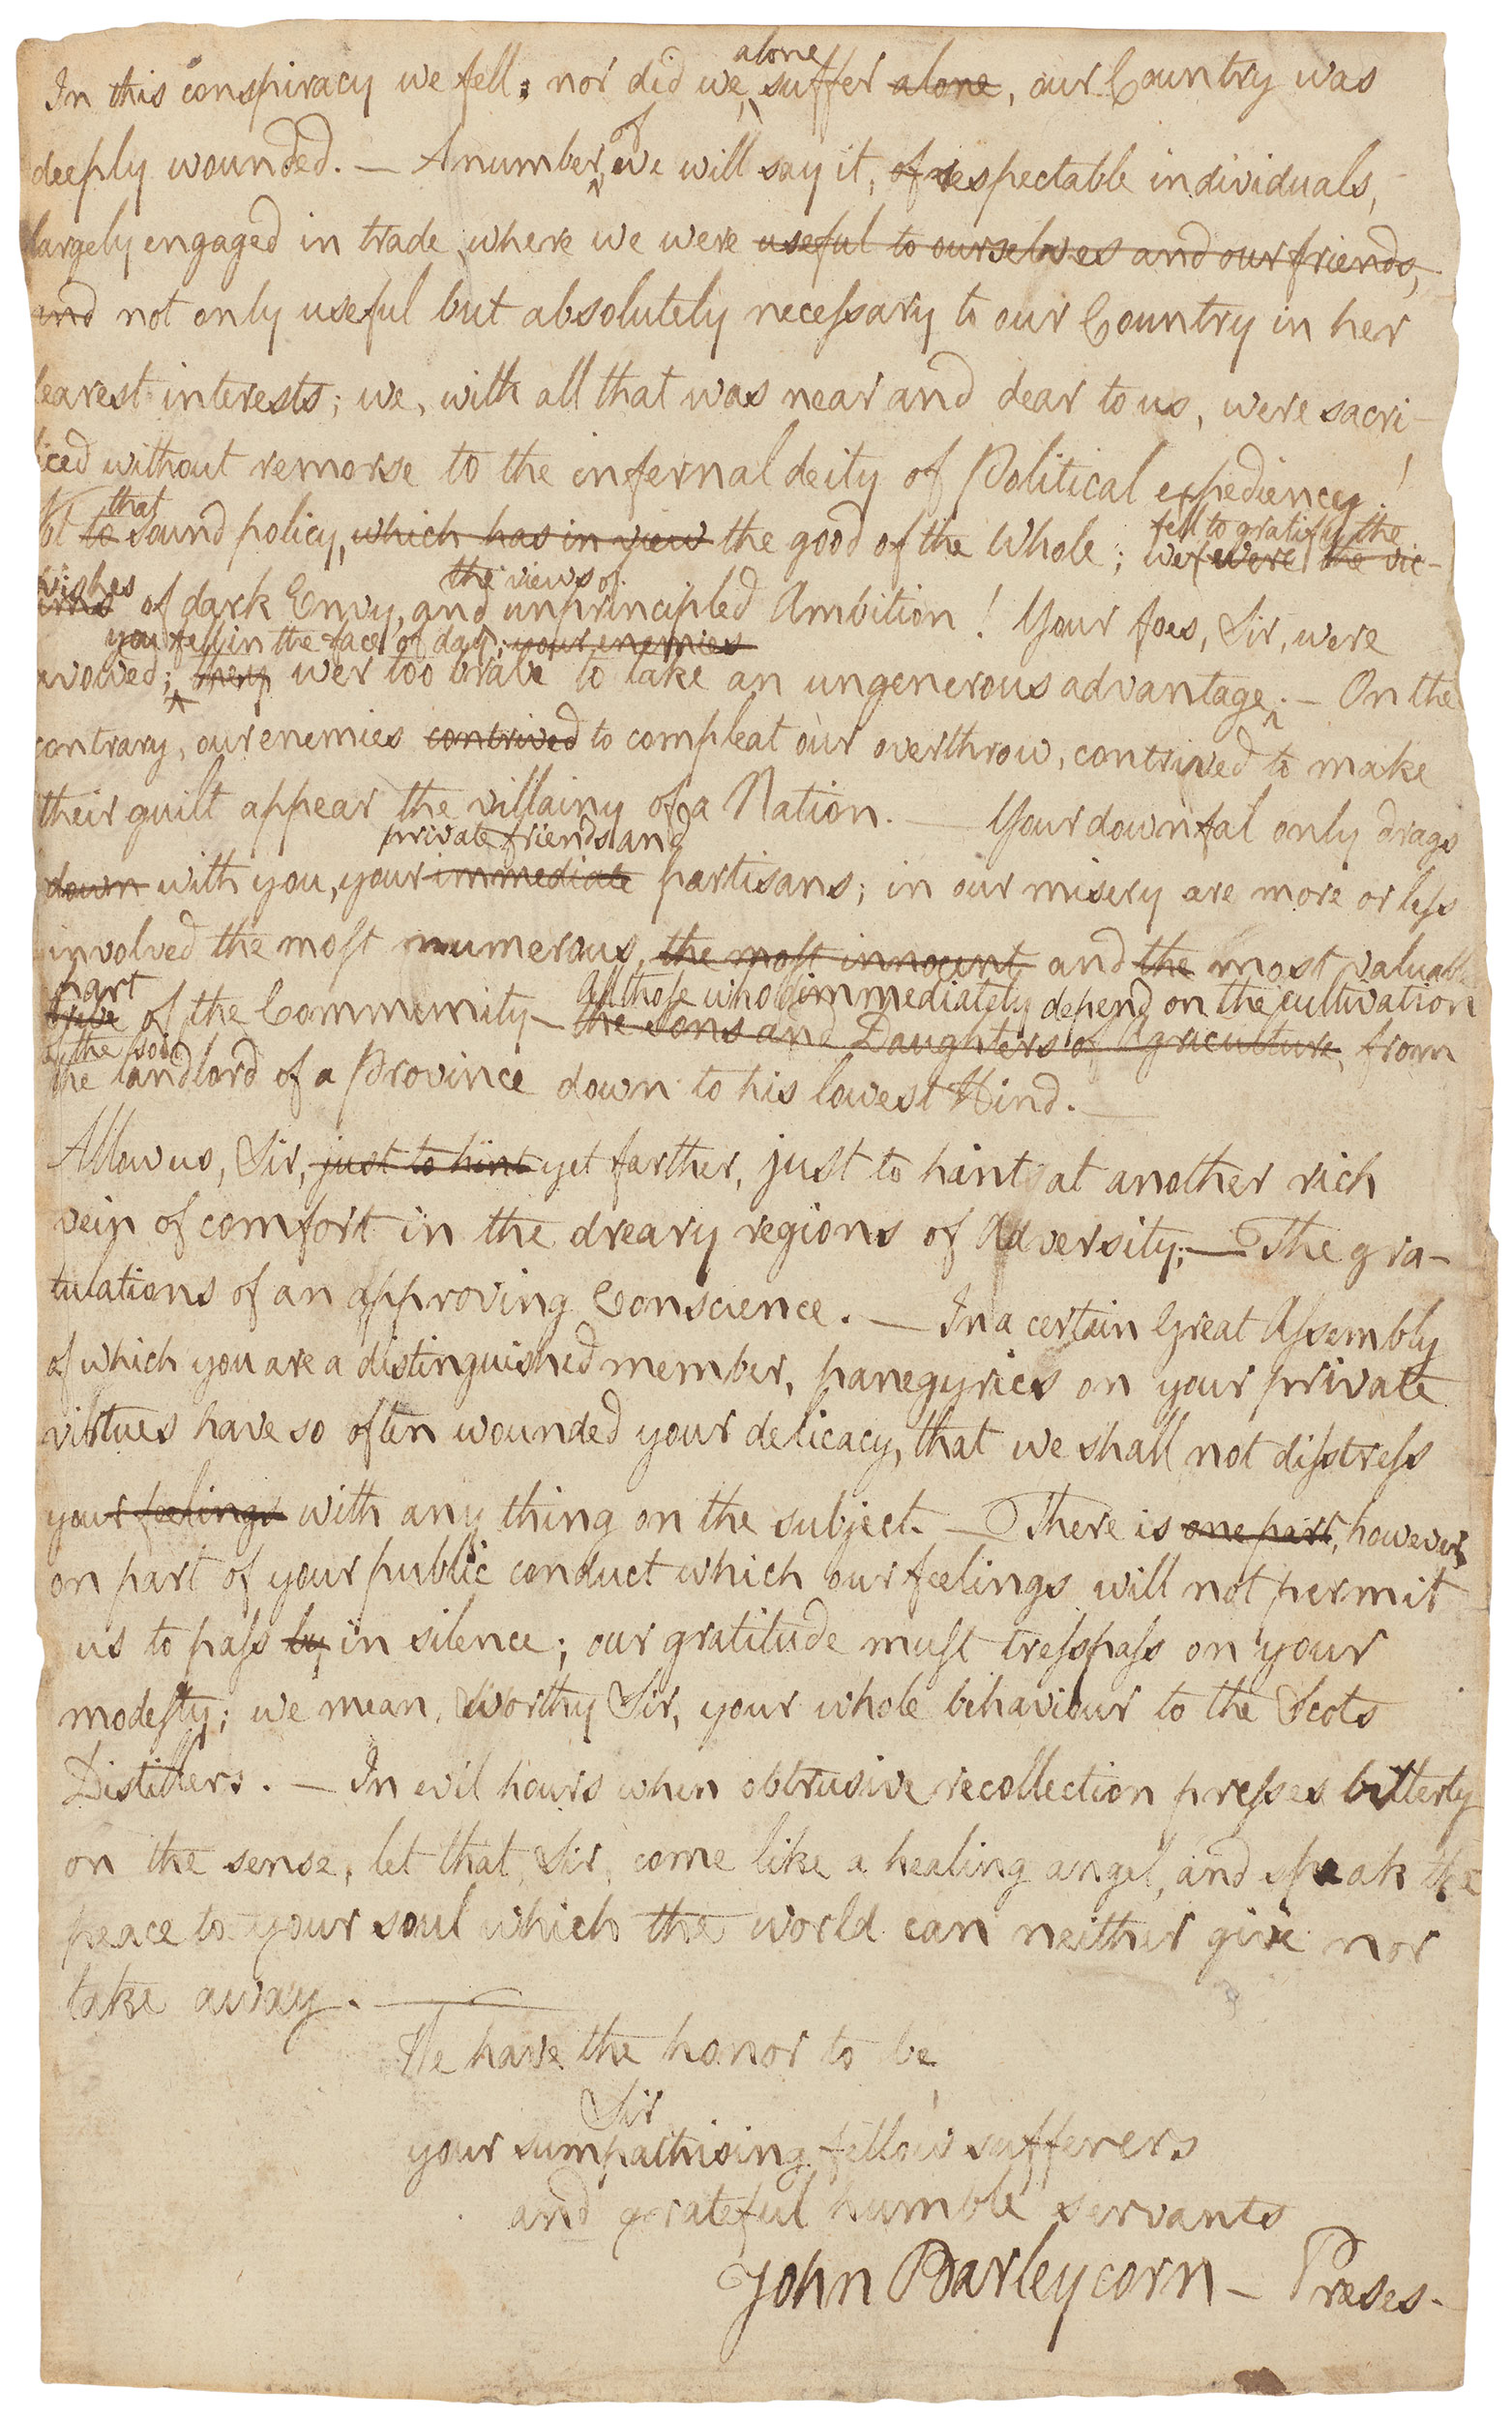 alone
In this conspiracy we fell; nor did we suffer alone, our Country was
of
deeply wounded. — A number we will say it, of respectable individuals,
largely engaged in trade where we were useful to ourselves and our friends,
and not only useful but absolutely necessary to our Country in her
earest interests; we, with all that was near and dear to us, were sacri-
iced without remorse to the infernal deity of Political expediency!
that
to sound policy, which has in view the good of the Whole; we were the vic-
fell to gratify the
wishes
of dark Envy, and unprincipled Ambition! Your foes, Sir, were
the views of
you fell in the face of day; your enemies
avowed; they wer too brave to take an ungenerous advantage. — On the
contrary, our enemies contrived to compleat our overthrow, contrived to make
their guilt appear the villainy of a Nation. — Your downfal only drags
private friends and
down with you, your immediate partisans; in our misery are more or less
involved the most numerous, the most innocent and the most valuable
part
of the Community — the sons and Daughters of Agriculture, from
all those who immediately depend on the cultivation
of the soil
the landlord of a Province down to his lowest Hind. —
Allow us, Sir, just to hint yet farther, just to hint at another rich
vein of comfort in the dreary regions of Adversity; — The gra-
tulations of an approving Conscience. — In a certain Great Assembly
of which you are a distinguished member, panegyrics on your private
virtues have so often wounded your delicacy, that we shall not disstress
your feelings with any thing on the subject. — There is one part, however,
on part of your public conduct which our feelings will not permit
us to pass by in silence; our gratitude must tresspass on your
modesty; we mean, worthy Sir, your whole behaviour to the Scots
Distillers. — In evil hours when obtrusive recollection presses bitterly
on the sense, let that, Sir, come like a healing angel, and speak the
peace to your soul which the world can neither give nor
take away. —
We have the honor to be
Sir
your sympathising fellow sufferers
and grateful humble servants
John Barleycorn — Præses —